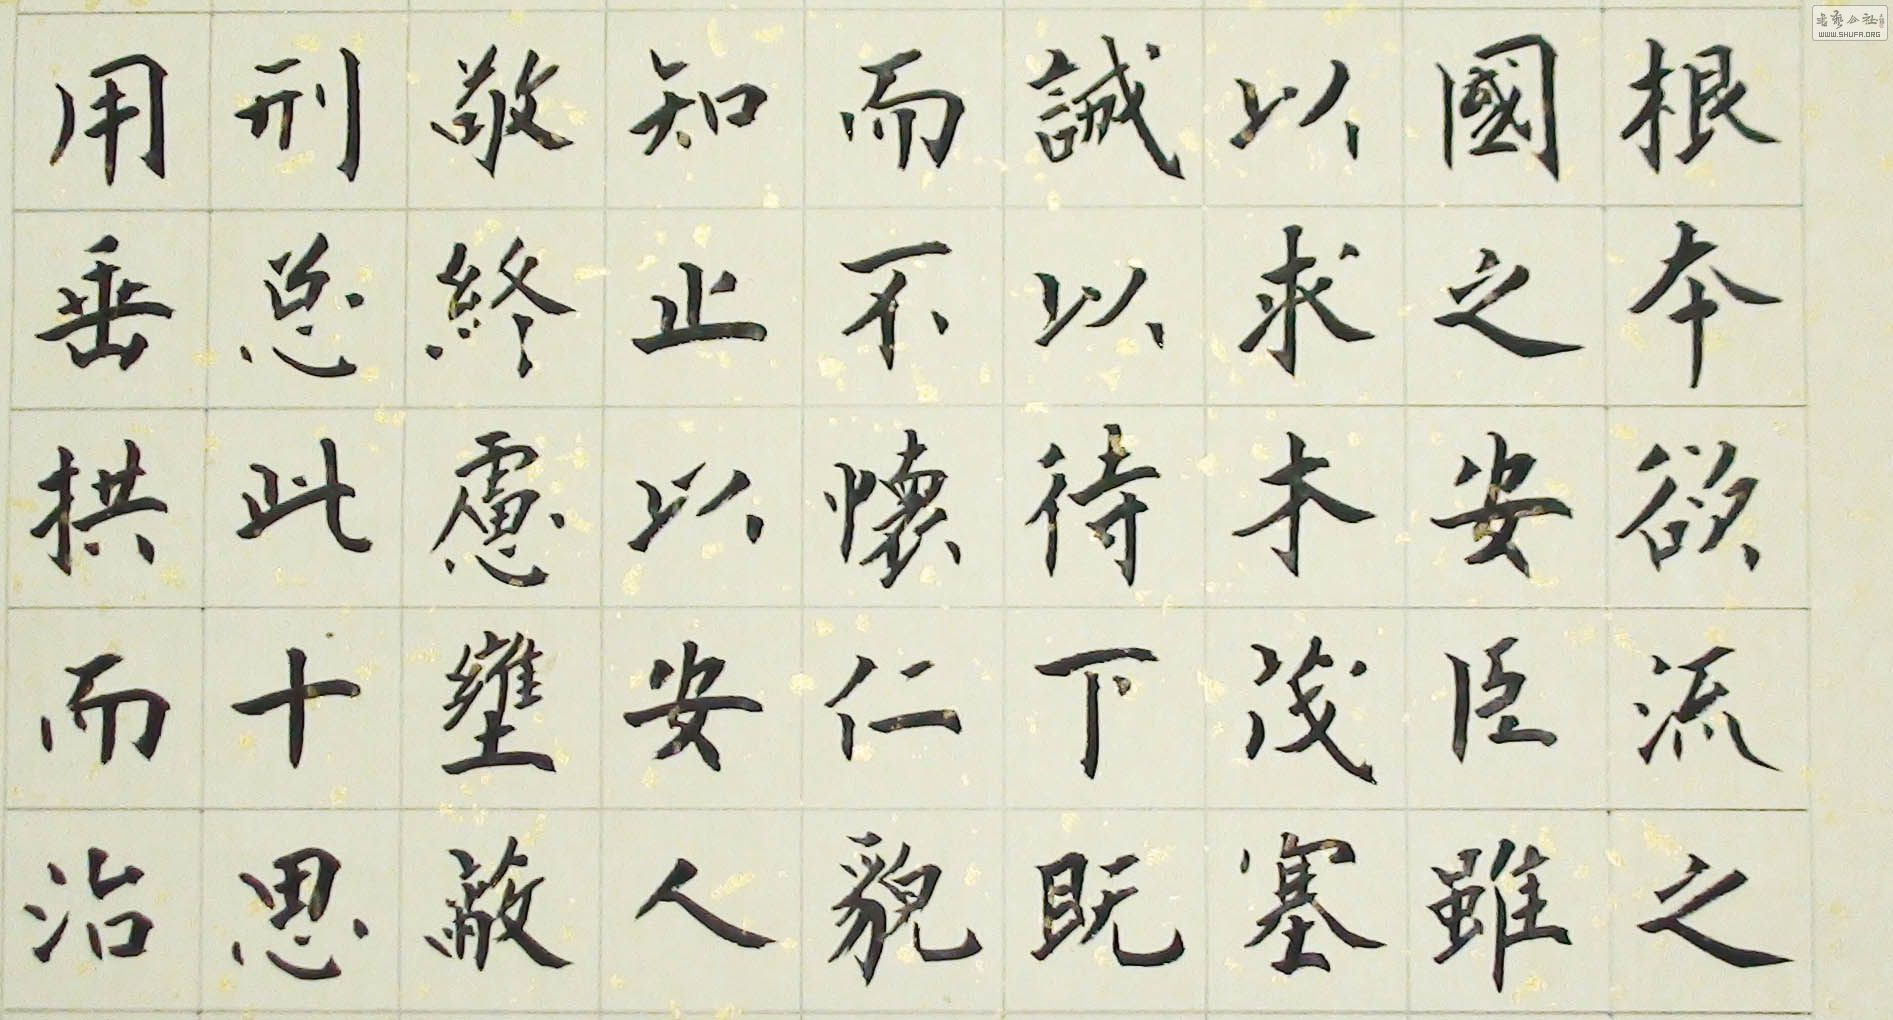 根本欲流之
國之安臣雖
以求木茂塞
誠以待下既
而不懷仁貌
知止以安人
敬終慮壅蔽
刑忽此十思
用垂拱而治
書藝公社
WWW.SHUFA.ORG